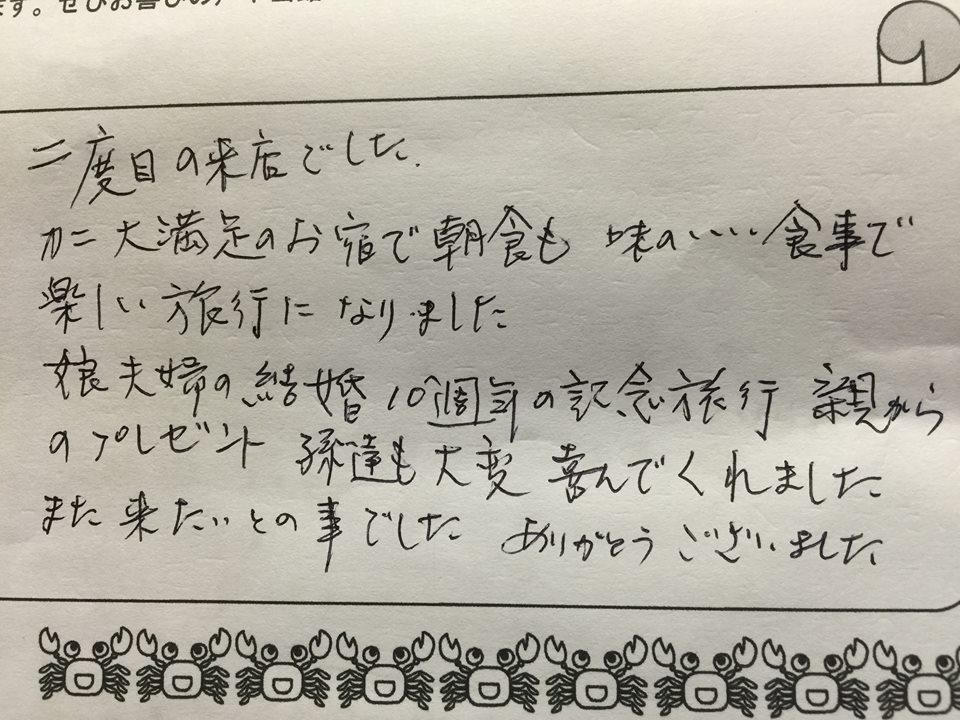 ます。ぜひお喜びの
二度目の来店でした.
カニ大満足のお宿で朝食も 味のいい食事で
楽しい旅行になりました
娘夫婦の結婚10週年の記念旅行 親から
のプレゼント 孫達も大変 喜んでくれました
また来たいとの事でした ありがとうございました